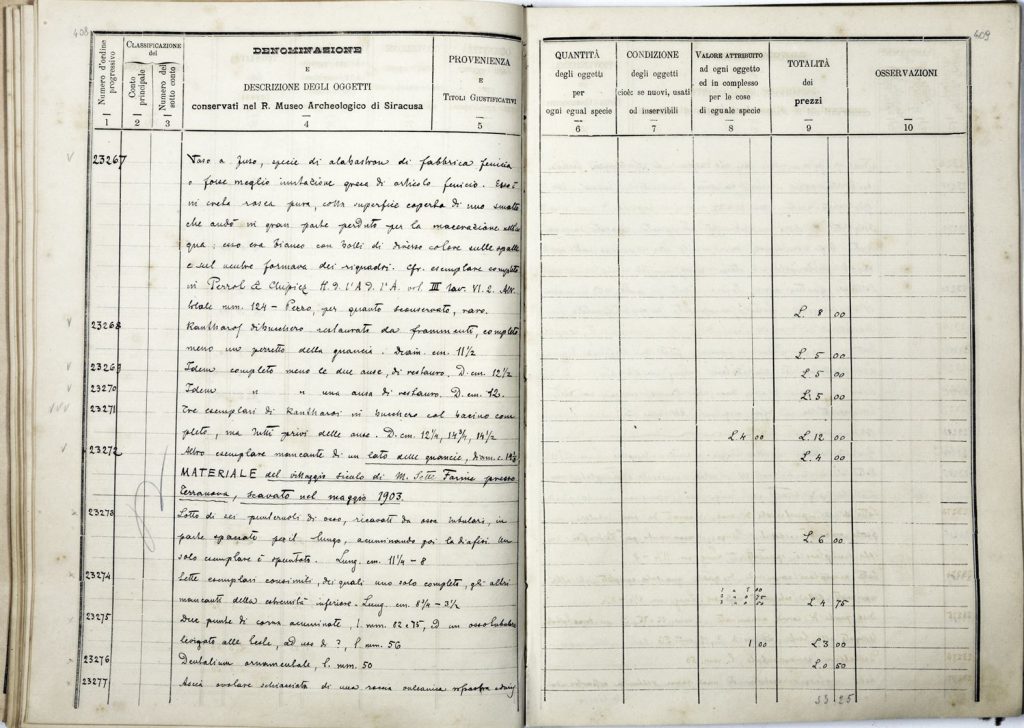 408
Numero d'ordine progressivo
CLASSIFICAZIONE del
Conto principale
Numero del sotto conto
DENOMINAZIONE
E
DESCRIZIONE DEGLI OGGETTI
conservati nel R. Museo Archeologico di Siracusa
PROVENIENZA
E
TITOLI GIUSTIFICATIVI
1 2 3 4 5
23267 Vaso a fuso, specie di alabastron di fabbrica fenicia
o forse meglio imitazione greca di articolo fenicio. Esso è
in creta rosea pura, colla superficie coperta di uno smalto
che andò in gran parte perduto per la macerazione
qua; esso era bianco con bolli di diverso colore sulle spalle
e sul ventre formava dei riquadri. Cfr. esemplare completo
in Perrot & Chipiez H. d. l'A. d. l'A. vol. III tav. VI. 2. Alt.
totale mm. 124 – Pezzo, per quanto sconservato, raro.
23268 Kantharos di bucchero restaurato da frammenti, completo
meno un pezzetto della guancia. Diam. cm. 11 1/2
23269 Idem completo meno le due anse, di restauro. D. cm. 12 1/2
23270 Idem " " una ansa di restauro. D. cm. 12.
23271 Tre esemplari di Kantharoi in bucchero col bacino com
pleto, ma tutti privi delle anse. D. cm. 12 1/4, 14 3/4, 14 1/2
23272 Altro esemplare mancante di un lato delle guancie, diam. c.
MATERIALE del villaggio siculo di M. Sette Farine presso
Terranova, scavato nel maggio 1903.
23273 Lotto di sei punteruoli di osso, ricavati da ossa tubulari, in
parte spaccati per il lungo, acuminando poi la diafisi. Un
solo esemplare è spuntato. Lung. cm. 11 1/4 – 8
23274 Sette esemplari consimili, dei quali uno solo completo, gli altri
mancanti della estremità inferiore. Lung. cm. 8 3/4 – 3 1/2
23275 Due punte di corna acuminate, l. mm. 82 e 75, ed un osso tubulare
levigato alle teste, ad uso di ?, l. mm. 56
23276 Dentalium ornamentale, l. mm. 50
23277 Ascia ovolare schiacciata di una roccia vulcanica
409
QUANTITÀ
degli oggetti
per
ogni egual specie
CONDIZIONE
degli oggetti
cioè: se nuovi, usati
od inservibili
VALORE ATTRIBUITO
ad ogni oggetto
ed in complesso
per le cose
di eguale specie
TOTALITÀ
dei
prezzi
OSSERVAZIONI
6 7 8 9 10
L. 8 00
L. 5 00
L. 5 00
L. 5 00
L. 4 00 L. 12 00
L. 4 00
L. 6 00
L. 4 75
1 00 L. 3 00
L. 0 50
53 25